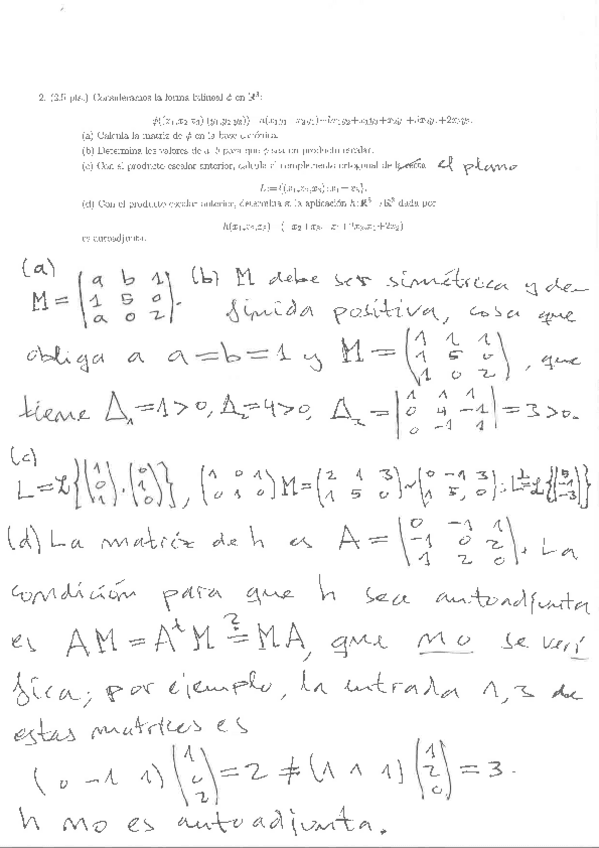 2. (2.5 pts.) Consideramos la forma bilineal ϕ en R³:
(a) Calcula la matriz de ϕ en la base canónica.
(b) Determina los valores de a, b para que ϕ sea un producto escalar.
(c) Con el producto escalar anterior, calcula el complemento ortogonal de el plano
L := {(x₁,x₂,x₃) : x₁ = x₃}.
(d) Con el producto escalar anterior, determina si la aplicación h: R³ → R³ dada por
es autoadjunta.
(a) M = (a b 1; 1 5 0; a 0 2). (b) M debe ser simétrica y de-
finida positiva, cosa que
obliga a a=b=1 y M = (1 1 1; 1 5 0; 1 0 2), que
tiene Δ₁=1>0, Δ₂=4>0, Δ₃ = |1 1 1; 0 4 -1; 0 -1 1| = 3>0.
(c) L = L{(1 0 1), (0 1 0)}, (1 0 1; 0 1 0) M = (2 1 3; 1 5 0) ~ (0 -1 3; 1 5, 0) : L^⊥ = L{(5 -1 -3)}
(d) La matriz de h es A = (0 -1 1; -1 0 2; 1 2 0). La
condición para que h sea autoadjunta
es AM = AᵗM ≟ MA, que no se veri
fica; por ejemplo, la entrada 1,3 de
estas matrices es
(0 -1 1)(1 0 2) = 2 ≠ (1 1 1)(1 2 0) = 3.
h no es autoadjunta.